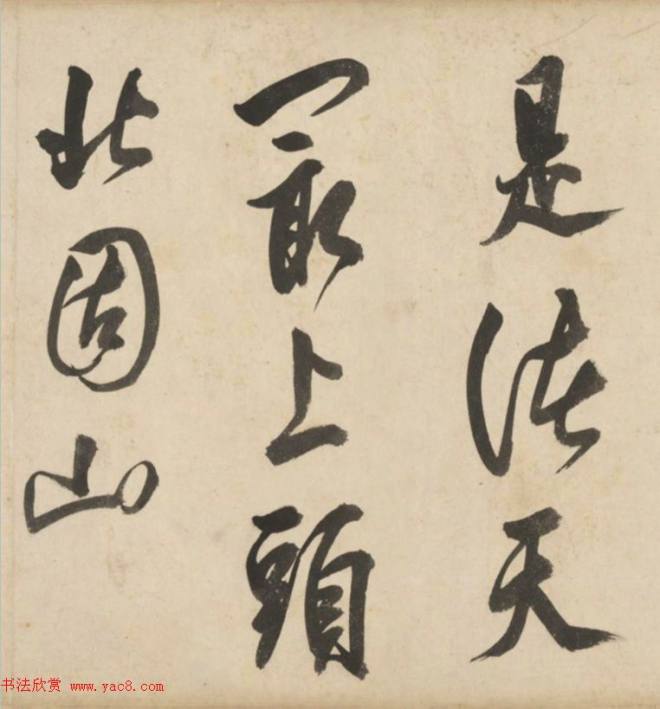 是諸天
最上頭
北固山
书法欣赏 www.yac8.com